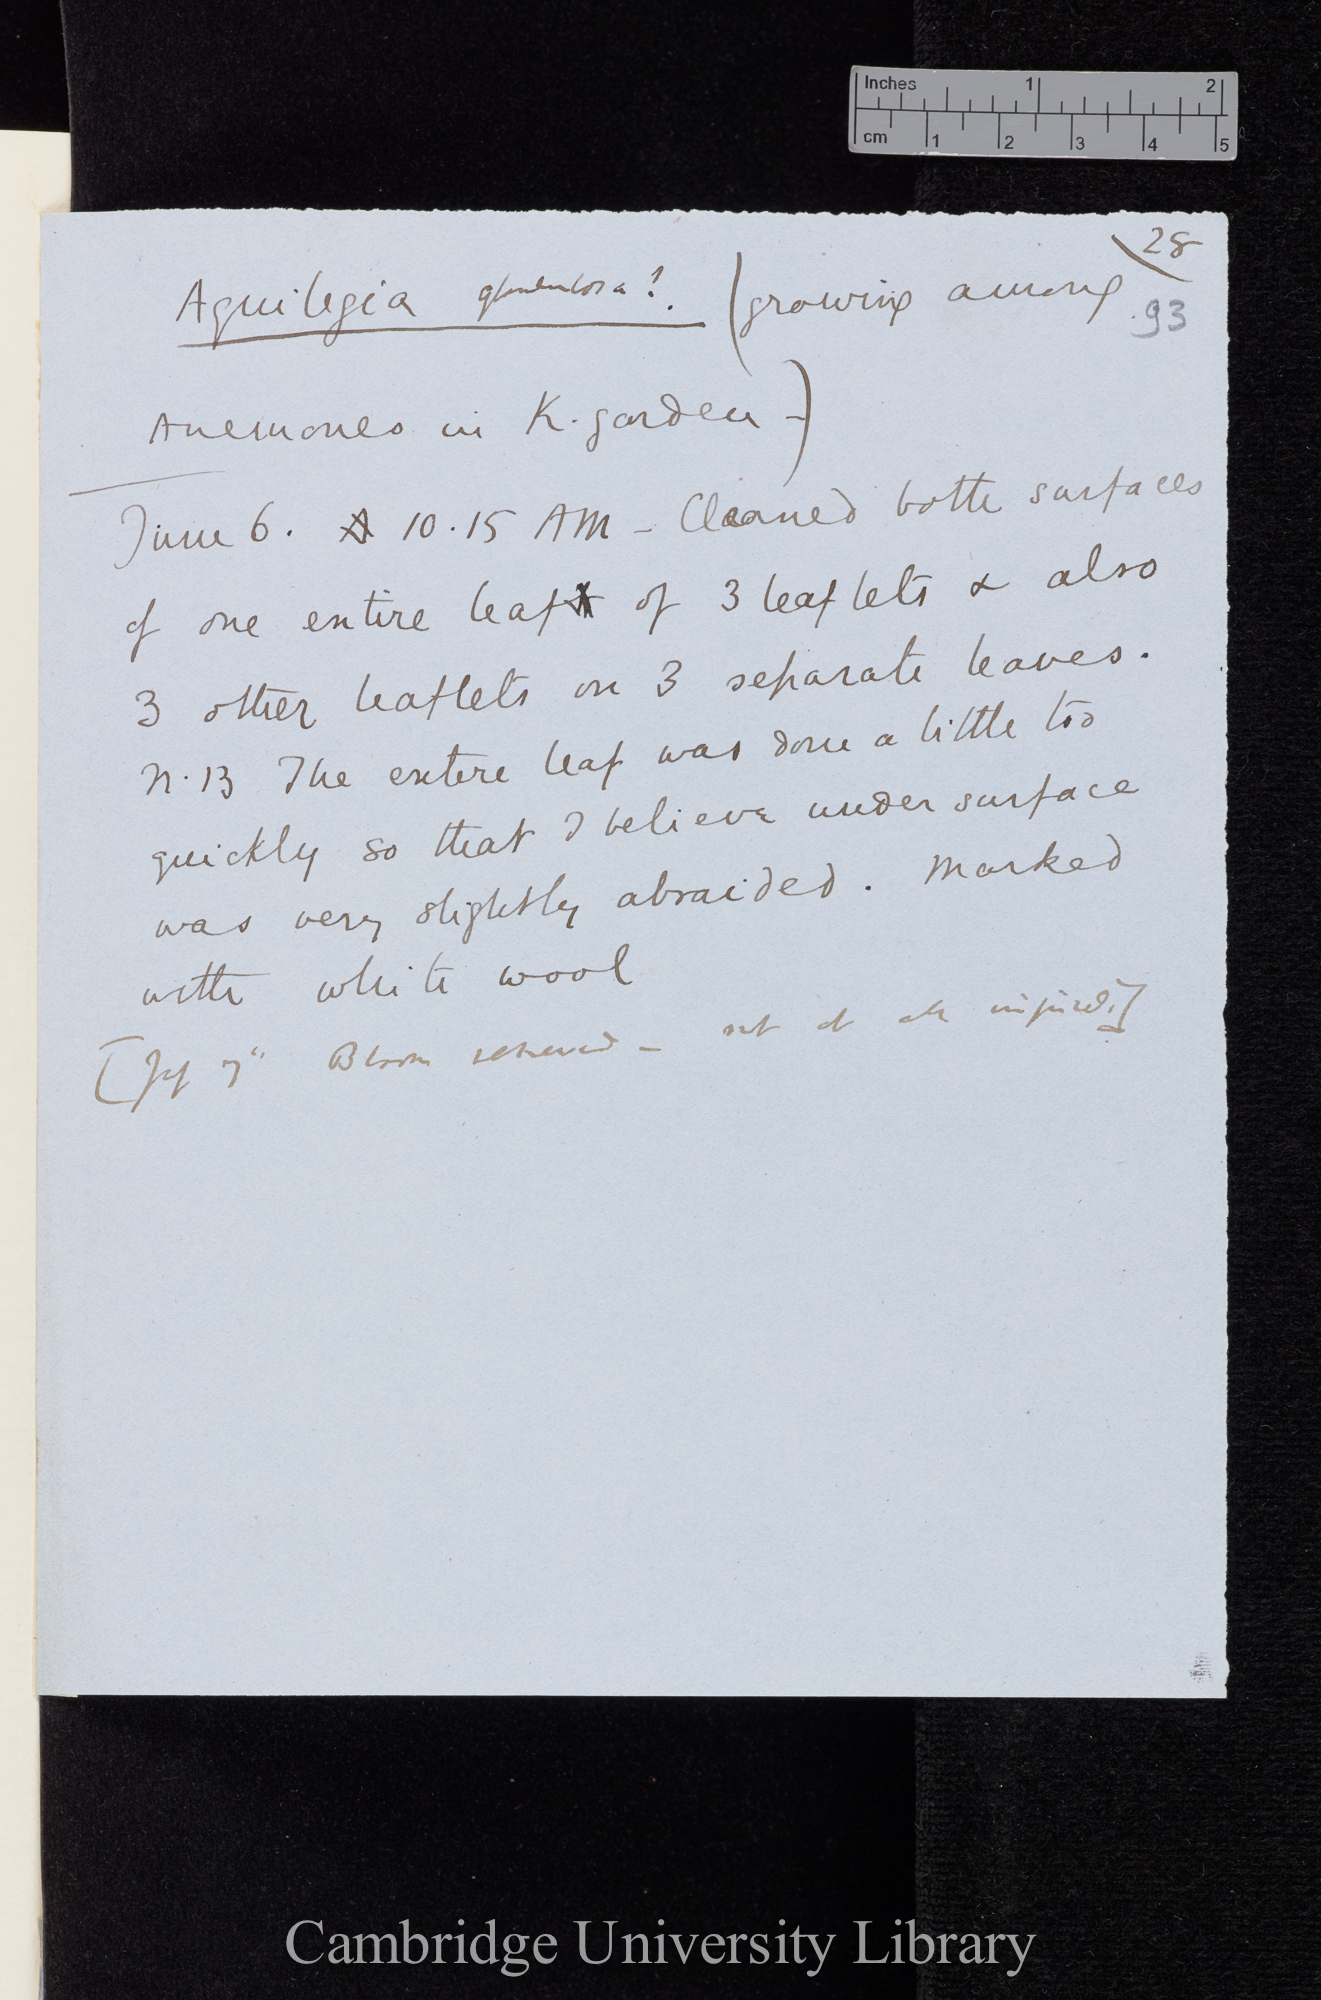 Inches 1 2
cm 1 2 3 4 5
28
93
Aquilegia glandulosa?. (growing among
Anemones in K. garden -)
June 6. A 10.15 AM - Cleaned both surfaces
of one entire leaf of 3 leaflets & also
3 other leaflets on 3 separate leaves.
N.B The entire leaf was done a little too
quickly so that I believe under surface
was very slightly abraided. Marked
with white wool
[July 7th Bloom removed - not at all injured.]
Cambridge University Library